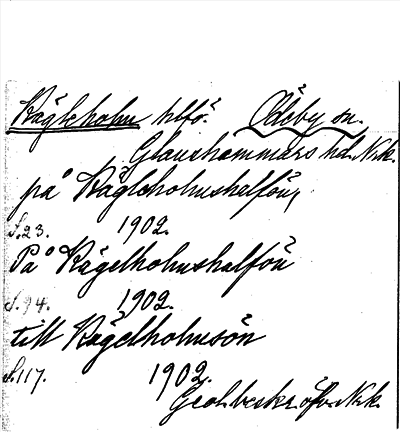 Kägleholm hlfö. Ödeby sn.
Glanshammars hd. Nrk.
på Käglcholmshalfön,
S. 23. 1902.
På Kägelholmshalfön
S. 94. 1902.
till Kägelholmsön
S. 117. 1902.
Geol. beskr. öfv. Nrk.